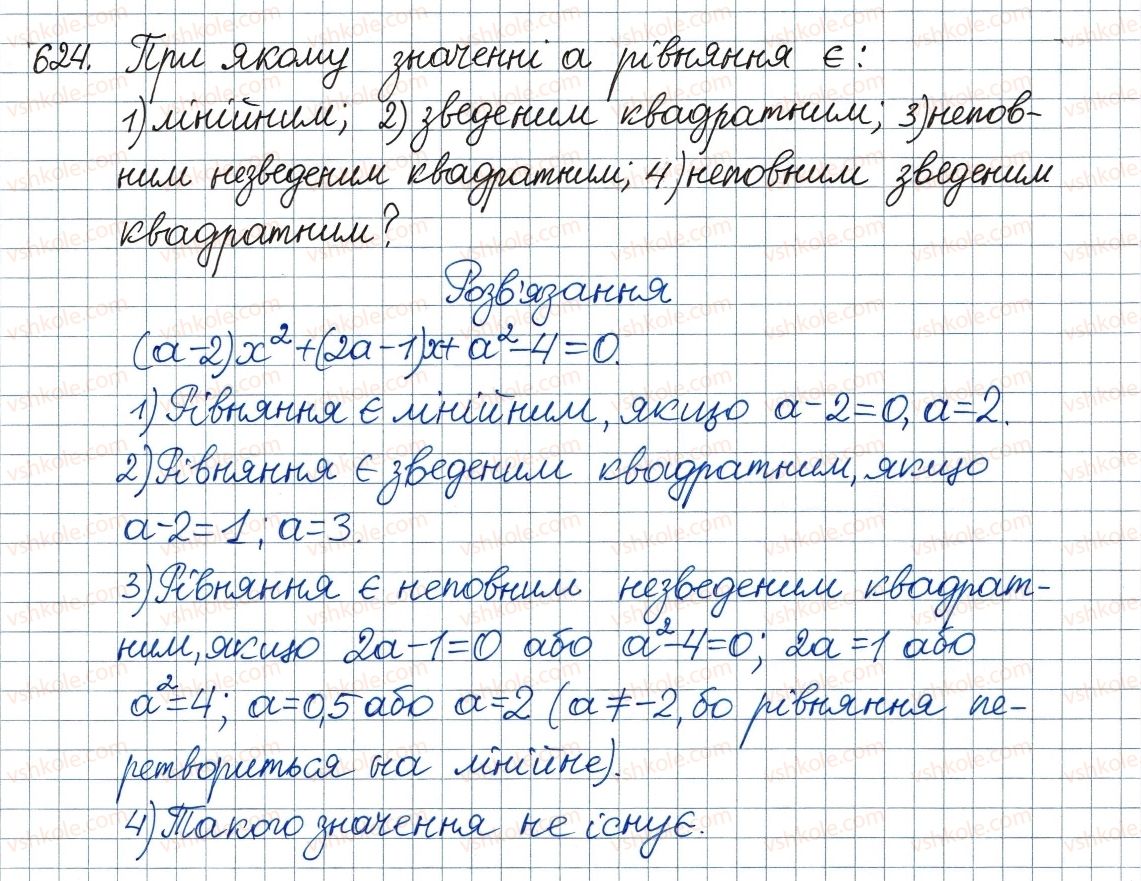 624. При якому значенні а рівняння є:
1) лінійним; 2) зведеним квадратним; 3) непов-
ним незведеним квадратним; 4) неповним зведеним
квадратним?
Розв'язання
(a-2)x²+(2a-1)x+a²-4=0.
1) Рівняння є лінійним, якщо a-2=0, a=2.
2) Рівняння є зведеним квадратним, якщо
a-2=1; a=3.
3) Рівняння є неповним незведеним квадрат-
ним, якщо 2a-1=0 або a²-4=0; 2a=1 або
a²=4; a=0,5 або a=2 (a≠-2, бо рівняння пе-
ретвориться на лінійне).
4) Такого значення не існує.